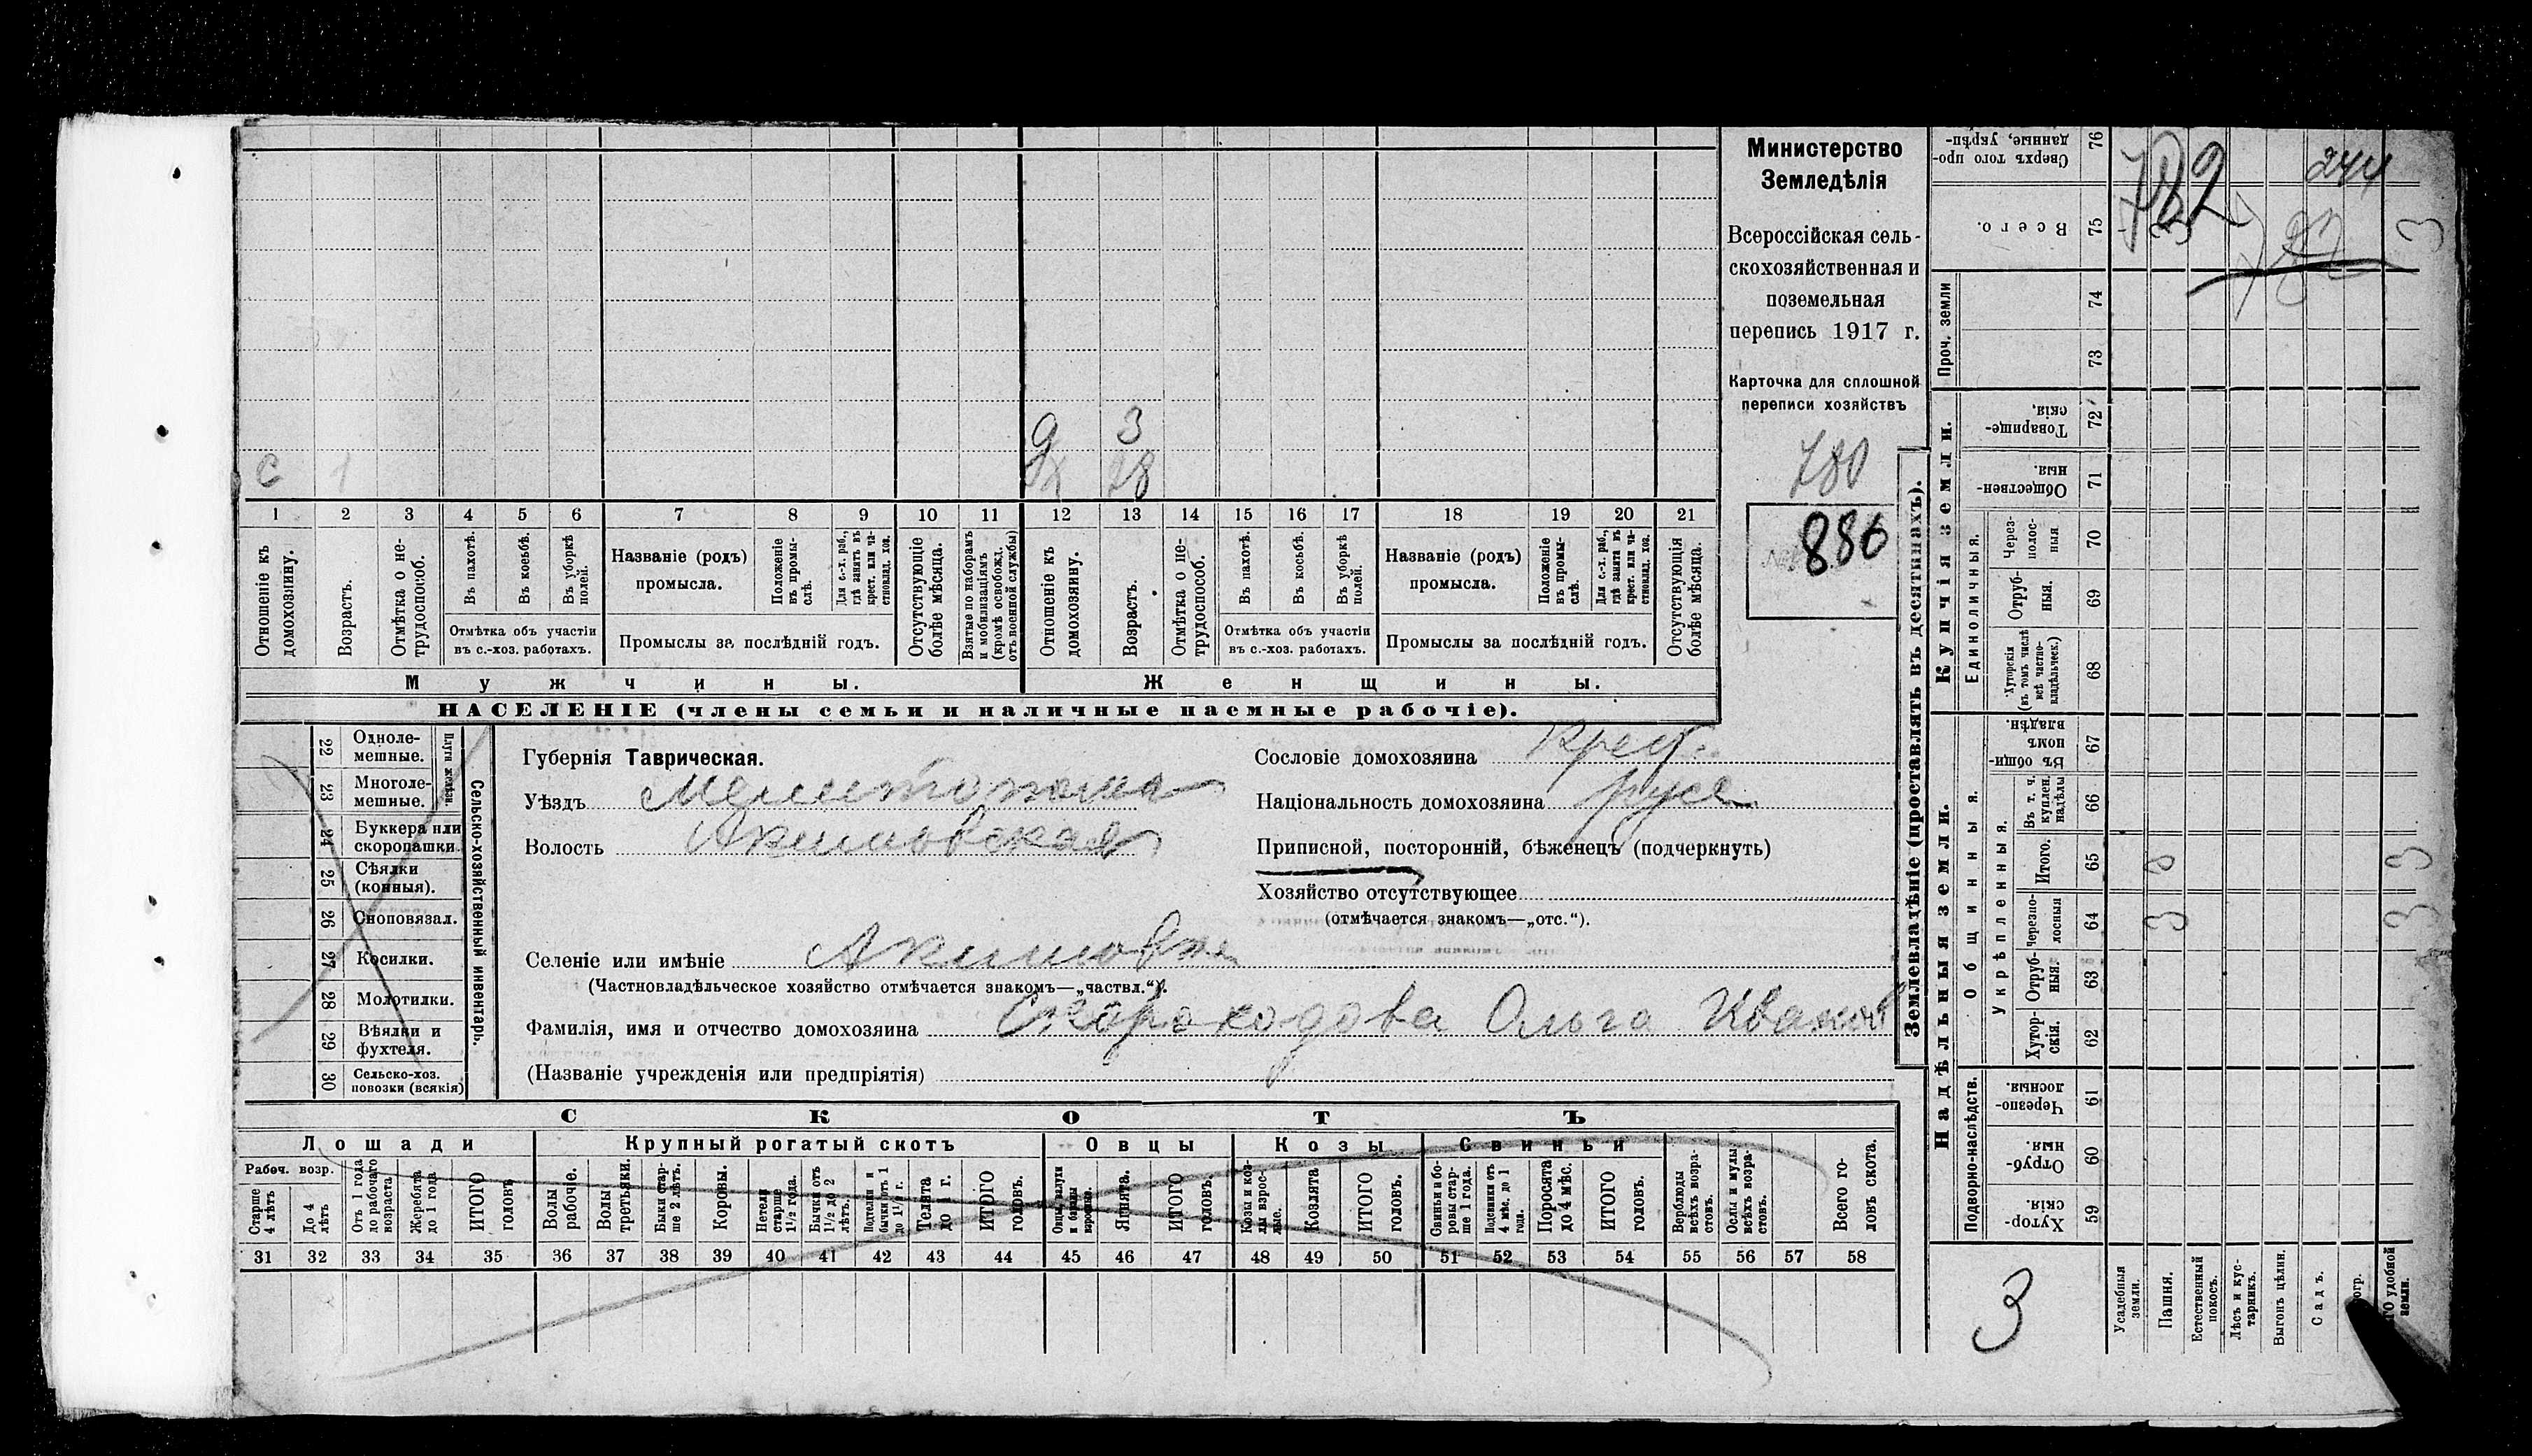 Министерство
Земледѣлія
Всероссійская сель-
скохозяйственная и
поземельная
перепись 1917 г.
Карточка для сплошной
переписи хозяйствъ
780
886
д 3
с 1 28
1 2 3 4 5 6 7 8 9 10 11 12 13 14 15 16 17 18 19 20 21
Отношеніе къ домохозяину.
Возрастъ.
Отмѣтка о не-трудоспособ.
Въ пахотѣ.
Въ косьбѣ.
Въ уборкѣ полей.
Отмѣтка объ участіи
въ с.-хоз. работахъ.
Названіе (родъ)
промысла.
Положеніе въ промы-слѣ.
Для с.-х. раб., гдѣ занятъ въ крест. или ча-стновлад. хоз.
Промыслы за послѣдній годъ.
Отсутствующіе болѣе мѣсяца.
Взятые по наборамъ и мобилизаціямъ (кромѣ освобожд. отъ военной службы)
Отношеніе къ домохозяину.
Возрастъ.
Отмѣтка о не-трудоспособ.
Въ пахотѣ.
Въ косьбѣ.
Въ уборкѣ полей.
Отмѣтка объ участіи
въ с.-хоз. работахъ.
Названіе (родъ)
промысла.
Положеніе въ промы-слѣ.
Для с.-х. раб., гдѣ занятъ въ крест. или ча-стновлад. хоз.
Промыслы за послѣдній годъ.
Отсутствующія болѣе мѣсяца.
Мужчины.
Женщины.
НАСЕЛЕНІЕ (члены семьи и наличные наемные рабочіе).
22 Одноле-мешные.
23 Многоле-мешные.
24 Буккера или скоропашки
25 Сѣялки (конныя).
26 Сноповязал.
27 Косилки.
28 Молотилки.
29 Вѣялки и фухтеля.
30 Сельско-хоз. повозки (всякія)
Сельско-хозяйственный инвентарь.
Губернія Таврическая.
Уѣздъ
Волость Акимовская
Сословіе домохозяина Крест.
Національность домохозяина русс
Приписной, посторонній, бѣженецъ (подчеркнуть)
Хозяйство отсутствующее
(отмѣчается знакомъ—„отс.“).
Селеніе или имѣніе Акимовка
(Частновладѣльческое хозяйство отмѣчается знакомъ—„частвл.“).
Фамилія, имя и отчество домохозяина Скороходова Ольга
(Названіе учрежденія или предпріятія)
СКОТЪ
Лошади
Крупный рогатый скотъ
Овцы
Козы
Свиньи
Рабоч. возр.
Старше 4 лѣтъ
До 4 лѣтъ
Отъ 1 года до рабочаго возраста
Жеребята до 1 года
ИТОГО головъ
Волы рабочіе.
Волы третьяки.
Быки стар-ше 2 лѣтъ.
Коровы.
Нетели старше 1½ года.
Бычки отъ 1½ до 2 лѣтъ.
Подтелки и бычки отъ 1 до 1½ г.
Телята до 1 г.
ИТОГО головъ.
Овцы, валухи и бараны взрослые.
Ягнята.
ИТОГО головъ.
Козы и коз-лы взрос-лые.
Козлята
ИТОГО головъ.
Свиньи и бо-ровы стар-ше 1 года.
Подсвинки отъ 4 мѣс. до 1 года.
Поросята до 4 мѣс.
ИТОГО головъ.
Верблюды всѣхъ возра-стовъ.
Ослы и мулы всѣхъ возра-стовъ.
Всего го-ловъ скота.
31 32 33 34 35 36 37 38 39 40 41 42 43 44 45 46 47 48 49 50 51 52 53 54 55 56 57 58
Землевладѣніе (проставлять въ десятинахъ).
Купчія земли.
Надѣльныя земли.
Сверхъ того про-данные, укрѣп- 76
Всего. 75
Проч. земли
74
73
Товарище-скія, 72
Обществен-ныя. 71
Единоличныя.
Через-полос-ныя 70
Отруб-ныя. 69
Хуторскія (въ томъ числѣ всѣ частно-владѣльческ.) 68
Въ общи-номъ владѣн. 67
Общинныя.
Укрѣпленныя.
Въ т. ч. куплен. надѣлы 66
Итого. 65
Черезпо-лосныя 64
Отруб-ныя. 63
Хутор-скія. 62
Подворно-наслѣдств.
Черезпо-лосныя. 61
Отруб-ныя. 60
Хутор-скія. 59
3
Усадебныя земли.
Пашня.
Естественный покосъ.
Лѣсъ и кус-тарникъ.
Выгонъ цѣлин.
Садъ.
удобной земли.
782
244
3
3 3
3 3